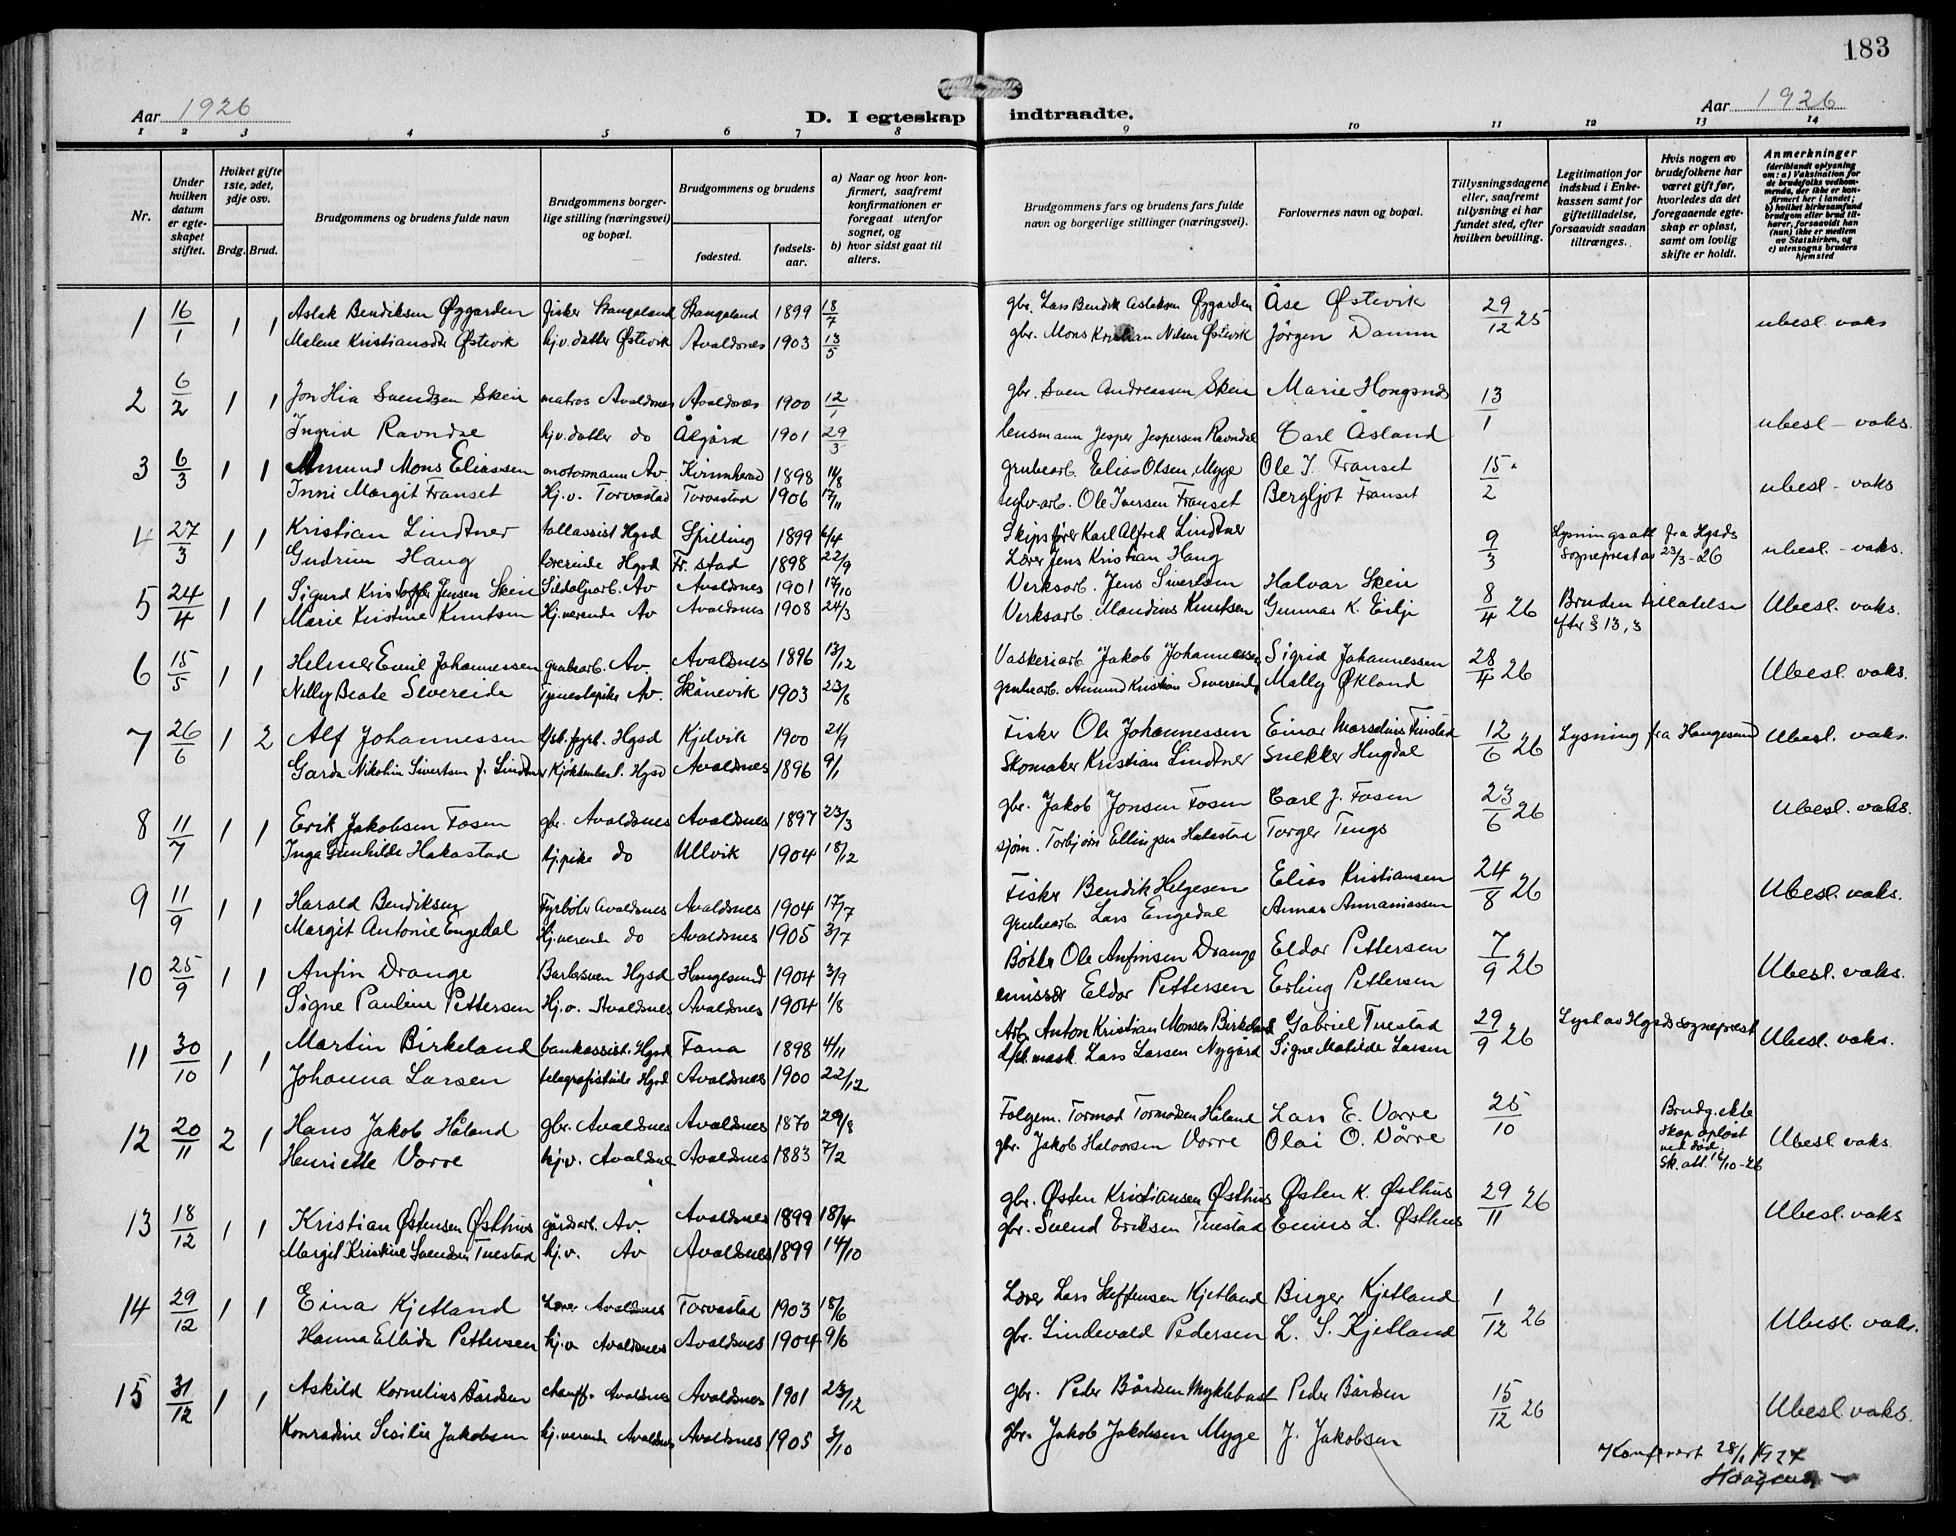 183
Aar 1926
D. I egteskap indtraadte.
Aar 1926
1 2 3 4 5 6 7 8 9 10 11 12 13 14
Nr.
Under hvilken datum er egteskapet stiftet.
Hviket gifte 1ste, 2det, 3dje osv.
Brdg. Brud.
Brudgommens og brudens fulde navn
Brudgommens borgerlige stilling (næringsvei) og bopæl.
Brudgommens og brudens
fødested.
fødselsaar.
a) Naar og hvor konfirmert, saafremt konfirmationen er foregaat utenfor sognet, og
b) hvor sidst gaat til alters.
Brudgommens fars og brudens fars fulde navn og borgerlige stillinger (næringsvei).
Forlovernes navn og bopæl.
Tillysningsdagene eller, saafremt tillysning ei har fundet sted, efter hvilken bevilling.
Legitimation for indskud i Enkekassen samt for giftetilladelse, forsaavidt saadan tiltrænges.
Hvis nogen av brudefolkene har været gift før, hvorledes da det foregaaende egteskap er opløst, samt om lovlig skifte er holdt.
Anmerkninger (deriblandt oplysning om: a) Vaksination for de brudefolks vedkommende, der ikke er konfirmert her i landet; b) hvilket kirkesamfund brudgom eller brud tilhører, forsaavidt han (hun) ikke er medlem av Statskirken, og c) utensogns bruders hjemsted
1 16/1 1 1 Aslak Bendiksen Øygarden fisker Stangaland Stangaland 1899 18/7 gbr. Lars Bendik Aslaksen Øygarden Åse Østevik 29/12 25 ubesl. vaks
Malene Kristiansdtr Østevik hj.v. datter Østevik Avaldsnes 1903 13/5 gbr. Mons Kristian Nilsen Østevik Jörgen Damm
2 6/2 1 1 Jon Hia Svendsen Skeie matros Avaldsnes Avaldsnes 1900 12/1 gbr. Sven Andreassen Skeie Marie 13/1 ubesl - vaks.
Ingrid Ravndal hj.v. datter do Ålgård 1901 29/3 lensmann Jesper Jespersen Ravndal Carl Åsland
3 6/3 1 1 Amund Mons Eliassen motormann Av. Kvinnherad 1898 14/8 grubearb. Elias Olsen, Myge Ole I. Franset 15/2 ubesl - vaks
Inni Margit Franset Hj.v. Torvastad Torvastad 1906 17/11 Ole Iversen Franset Bergljot Franset
4 27/3 1 1 Kristian Lindtner tollassist Hgsd 1899 6/4 Skipsfører Karl Alfred Lindtner 9/3 Lysningsatt fra Hgsds ubesl - vaks.
Gudrun Haug lærerinde Hgsd Fr.stad 1898 22/9 Lærer Jens Kristian Haug sogneprest av 23/3-26
5 24/4 1 1 Sigurd Kristoffer Jensen Skeie Sildoljearb. Av Avaldsnes 1901 17/10 Verksarb. Jens Sivertsen Halvar Skeie 8/4 26 Bruden tillatelse Ubesl. vaks.
Marie Kristine Knutsen Hj.verende Av Avaldsnes 1908 24/3 Verksarb. Maudius Knutsen Gunnar K. Eilje efter § 13, 3
6 15/5 1 1 Helmer Emil Johannessen grubearb. Av Avaldsnes 1896 13/12 Vaskeriarb. Jakob Johannessen Sigrid Johannessen 28/4 26 Ubesl. vaks.
Nelly Beate Severeide Tjenestepike Av. Skånevik 1903 23/8 grubearb. Amund Kristian Severeide Mally Økland
7 26/6 1 2 Alf Johannessen Hgsd Kjelvik 1900 21/9 Fisker Ole Johannessen Einar Marselius Tuestad 12/6 26 Lysning fra Haugesund Ubesl. vaks.
Garda Nikolin Sivertsen f. Lindtner Kjøkkenbest. Hgsd Avaldsnes 1896 9/1 Skomaker Kristian Lindtner Snekker Hugdal
8 11/7 1 1 Erik Jakobsen Fosen gbr. Avaldsnes Avaldsnes 1897 23/3 gbr. Jakob Jonsen Fosen Carl J. Fosen 23/6 26 Ubesl. vaks.
Inga Gunhilde Hakastad hj.pike do Ullvik 1904 18/12 sjøm. Torbjørn Ellingsen Hakastad Torger Tengs
9 11/9 1 1 Harald Bendiksen Fyrbøter Avaldsnes Avaldsnes 1904 17/7 Fisker Bendik Helgesen Elias Kristiansen 24/8 26 Ubesl. vaks.
Margit Antonie Engedal Hj.verende do Avaldsnes 1905 3/7 grubearb. Lars Engedal Annas Annaniassen
10 25/9 1 1 Anfin Drange Barbersven Hgsd Haugesund 1904 3/9 Bøkker Ole Anfinsen Drange Eldar Pettersen 7/9 26 Ubesl. vaks.
Signe Pauline Pettersen Hj.v. Avaldsnes Avaldsnes 1904 1/8 emissær Eldar Pettersen Erling Pettersen
11 30/10 1 1 Martin Birkeland bankassist. Hgsd Fana 1898 4/11 Arb. Anton Kristian Monsen Birkeland Gabriel Tuestad 29/9 26 Lyst av Hgsds sogneprest Ubesl. vaks.
Johanna Larsen telegrafistinde Hgsd Avaldsnes 1900 22/12 mask. Lars Larsen Nygård Signe Matilde Larsen
12 20/11 2 1 Hans Jakob Håland gbr. Avaldsnes Avaldsnes 1870 29/8 Følgem. Tormod Tormodsen Håland Lars E. Vorre 25/10 Brudg. ekteskap opløst ved død. Sk. att. 16/10-26 Ubesl. vaks.
Henriette Vorre hj.v. Avaldsne Avaldsnes 1883 7/2 gbr. Jakob Halvorsen Vorre Olai O. Vårre
13 18/12 1 1 Kristian Østensen Østhus gårdsarb. Av. Avaldsnes 1899 18/4 gbr. Østen Kristiansen Østhus Østen K. Østhus 29/11 26 Ubesl. vaks
Margit Kristine Svendsen Tuestad hj.v. Av Avaldsnes 1899 14/10 gbr. Svend Eriksen Tuestad Enius L. Østhus
14 29/12 1 1 Einar Kjetland Lærer Avaldsnes Torvastad 1903 18/6 Lærer Lars Steffensen Kjetland Birger Kjetland 1/12 26 Ubesl. vaks.
Hanna Ellida Pettersen hj.v Avaldsnes Avaldsnes 1904 9/6 gbr. Lindevald Pedersen L. S. Kjetland
15 31/12 1 1 Askild Kornelius Bårdsen chauff. Avaldsnes Avaldsnes 1901 23/12 gbr. Peder Bårdsen Myklebust Peder Bårdsen 15/12 26 Ubesl. vaks.
Konradine Sesilie Jakobsen hj.verende Avaldsnes Avaldsnes 1905 3/10 gbr. Jakob Jakobsen Myge J. Jakobsen
Konferert 28/1 1927